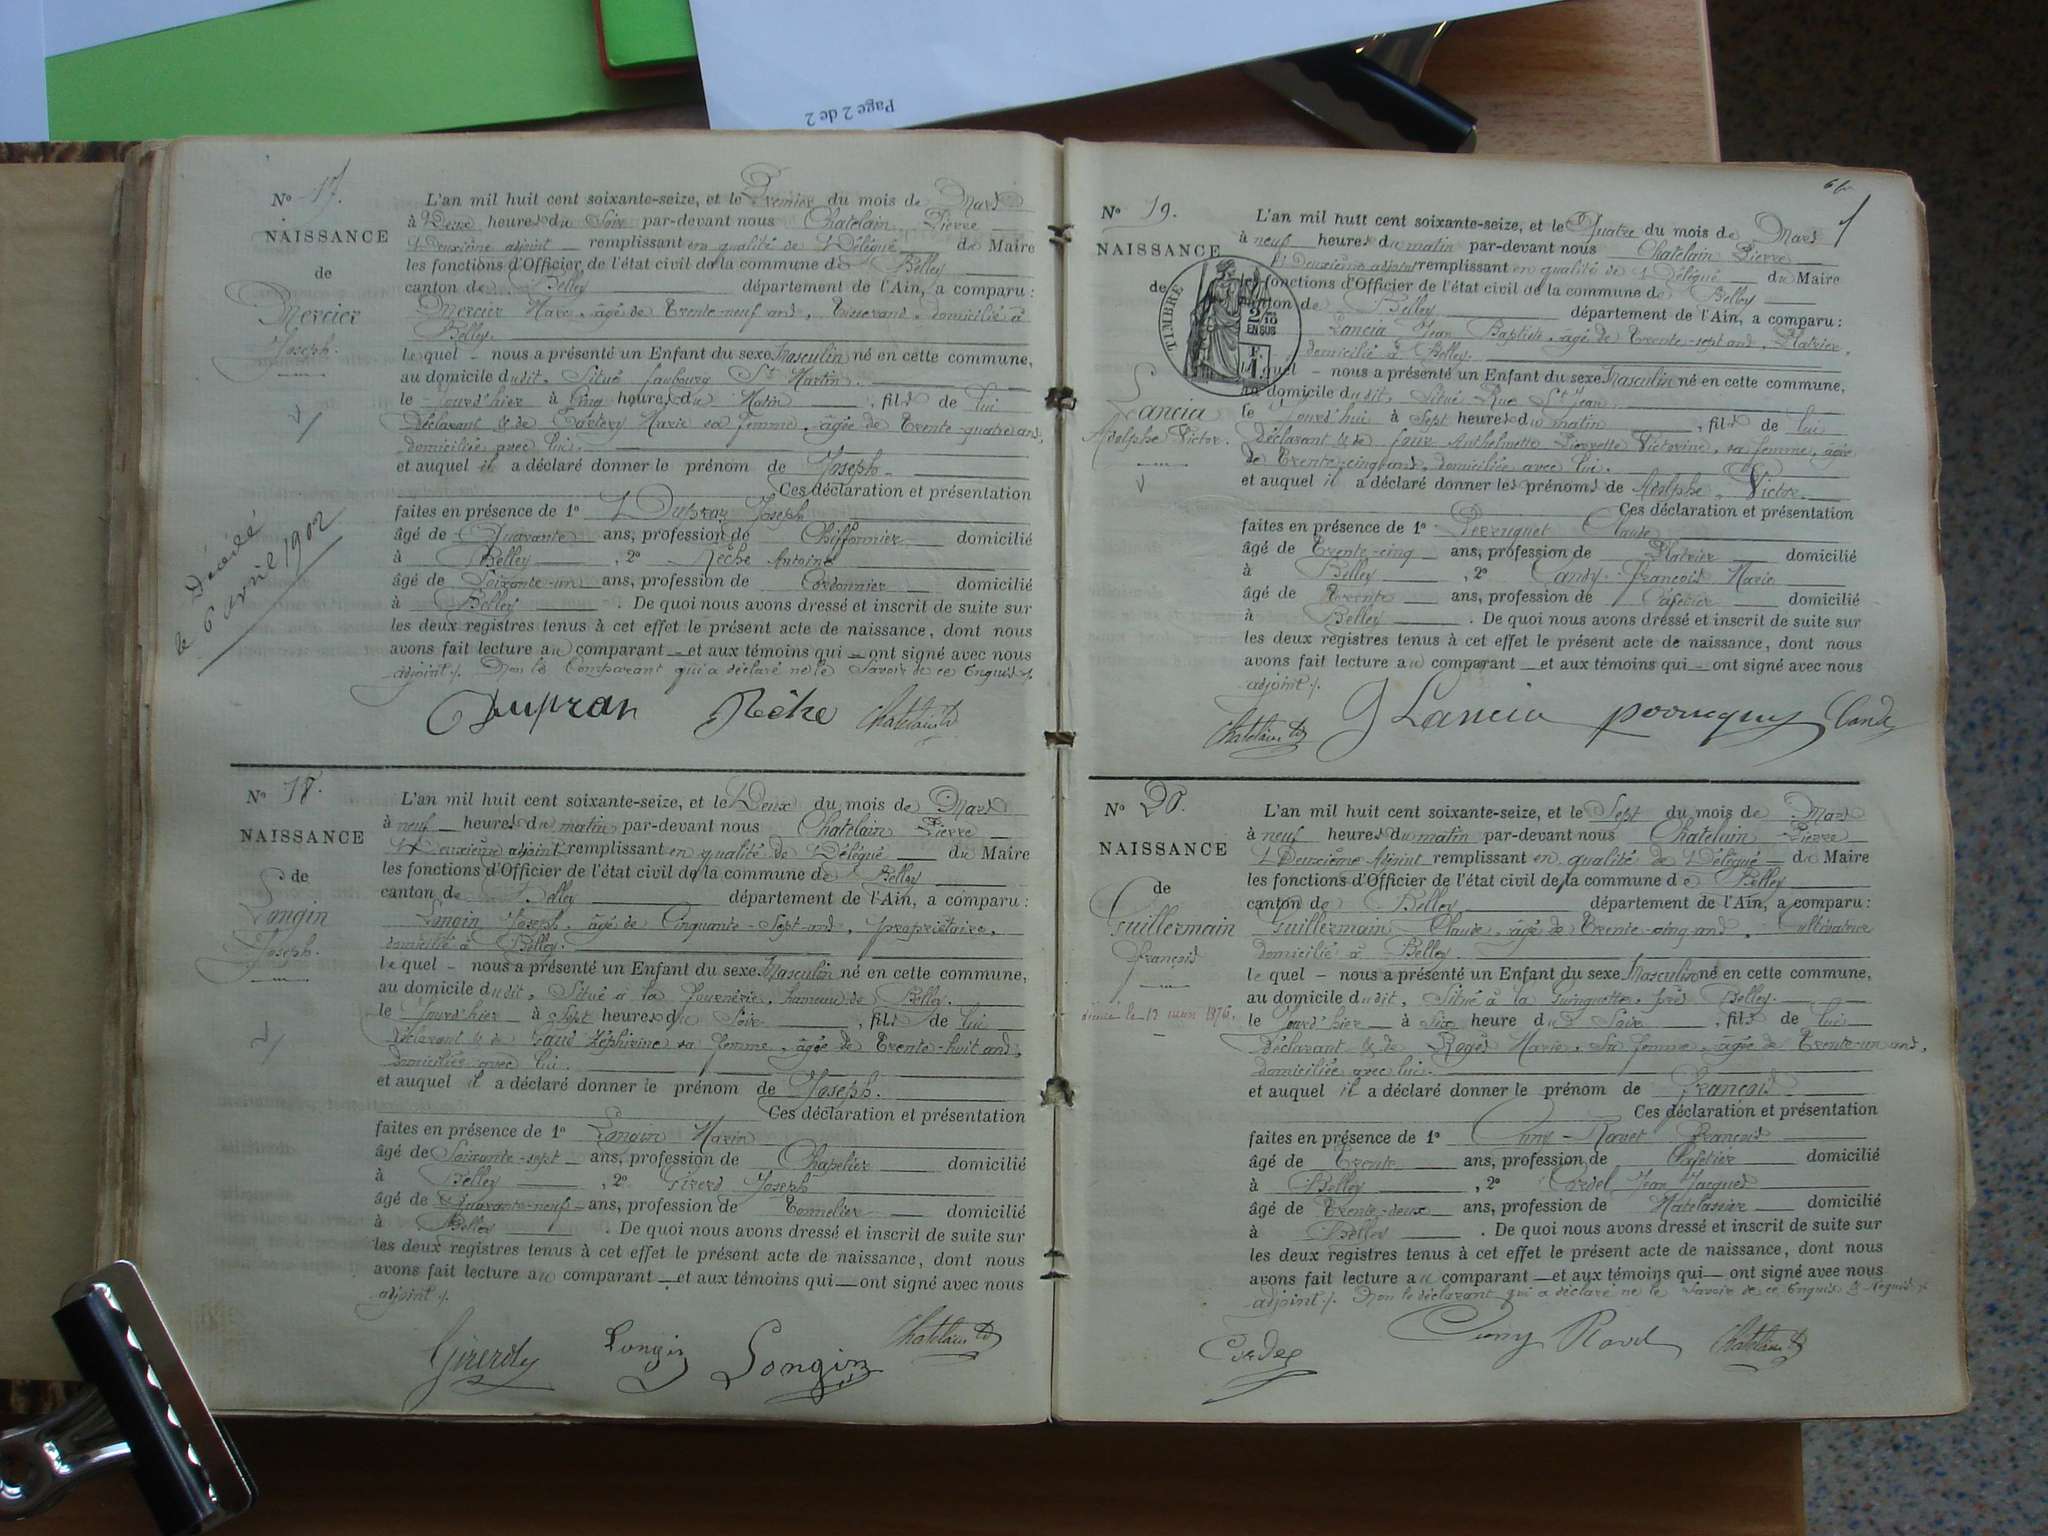 Page 2 de 2
N° 17.
NAISSANCE
de
Mercier
Joseph.
décédé
le 6 avril 1902
L'an mil huit cent soixante-seize, et le Premier du mois de Mars
à Deux heures du Soir par-devant nous Chatelain Pierre
Deuxième adjoint remplissant en qualité de Délégué du Maire
les fonctions d'Officier de l'état civil de la commune de Belley
canton de Belley département de l'Ain, a comparu :
Mercier Marc, âgé de Trente-neuf ans, Tisserand, domicilié à
Belley.
lequel - nous a présenté un Enfant du sexe Masculin né en cette commune,
au domicile dudit, Situé faubourg St Martin.
le Jourd'hier à Cinq heures du Matin, fils de lui
Déclarant & de Marie sa femme, âgée de Trente-quatre ans,
domiciliée avec lui.
et auquel il a déclaré donner le prénom de Joseph.
Ces déclaration et présentation
faites en présence de 1° Dupraz Joseph
âgé de Quarante ans, profession de Chiffonnier domicilié
à Belley, 2° Rêche Antoine
âgé de Soixante-un ans, profession de Cordonnier domicilié
à Belley. De quoi nous avons dressé et inscrit de suite sur
les deux registres tenus à cet effet le présent acte de naissance, dont nous
avons fait lecture au comparant — et aux témoins qui — ont signé avec nous
adjoint ./. Non le Comparant qui a déclaré ne le Savoir de ce Enquis ./.
Dupraz Rêche Chatelain
N° 18.
NAISSANCE
de
Longin
Joseph.
L'an mil huit cent soixante-seize, et le Deux du mois de Mars
à neuf heures du matin par-devant nous Chatelain Pierre
Deuxième adjoint remplissant en qualité de Délégué du Maire
les fonctions d'Officier de l'état civil de la commune de Belley
canton de Belley département de l'Ain, a comparu :
Longin Joseph, âgé de Cinquante-Sept ans, propriétaire,
domicilié à Belley.
lequel - nous a présenté un Enfant du sexe Masculin né en cette commune,
au domicile dudit, Situé à la hameau de Belley.
le Jourd'hier à Sept heures du Soir, fils de lui
déclarant & de Zéphirine sa femme, âgée de Trente-huit ans,
domiciliée avec lui.
et auquel il a déclaré donner le prénom de Joseph.
Ces déclaration et présentation
faites en présence de 1° Longin Marin
âgé de Soixante-sept ans, profession de Chapelier domicilié
à Belley, 2° Girerd Joseph
âgé de Quarante-neuf ans, profession de Tonnelier domicilié
à Belley. De quoi nous avons dressé et inscrit de suite sur
les deux registres tenus à cet effet le présent acte de naissance, dont nous
avons fait lecture au comparant — et aux témoins qui — ont signé avec nous
adjoint ./.
Longin Longin Chatelain
N° 19.
NAISSANCE
de
Lancia
Adolphe Victor.
TIMBRE
2/10
EN SUS
1 F.
L'an mil huit cent soixante-seize, et le Quatre du mois de Mars
à neuf heures du matin par-devant nous Chatelain Pierre
Deuxième adjoint remplissant en qualité de Délégué du Maire
les fonctions d'Officier de l'état civil de la commune de Belley
canton de Belley département de l'Ain, a comparu :
Lancia Jean Baptiste, âgé de Trente-sept ans, Platrier,
domicilié à Belley.
lequel - nous a présenté un Enfant du sexe Masculin né en cette commune,
au domicile dudit, Situé Rue St Jean.
le Jourd'hui à Sept heures du matin, fils de lui
Déclarant & de Anthelmette Pierrette Victorine, sa femme, âgée
de Trente-cinq ans, domiciliée avec lui.
et auquel il a déclaré donner les prénoms de Adolphe, Victor.
Ces déclaration et présentation
faites en présence de 1° Perruquet Claude
âgé de Trente-cinq ans, profession de Platrier domicilié
à Belley, 2° Candy François Marie
âgé de Trente ans, profession de Cafetier domicilié
à Belley. De quoi nous avons dressé et inscrit de suite sur
les deux registres tenus à cet effet le présent acte de naissance, dont nous
avons fait lecture au comparant — et aux témoins qui — ont signé avec nous
adjoint ./.
Chatelain J Lancia
N° 20.
NAISSANCE
de
Guillermain
François
le 13 mars 1976.
L'an mil huit cent soixante-seize, et le Sept du mois de Mars
à neuf heures du matin par-devant nous Chatelain Pierre
Deuxième Adjoint remplissant en qualité de Délégué du Maire
les fonctions d'Officier de l'état civil de la commune de Belley
canton de Belley département de l'Ain, a comparu :
Guillermain Claude, âgé de Trente-cinq ans, Cultivateur
domicilié à Belley.
lequel - nous a présenté un Enfant du sexe Masculin né en cette commune,
au domicile dudit, Situé à la Guinguette, près Belley.
le Jourd'hier à Six heure du Soir, fils de lui
Déclarant & de Roger Marie, Sa femme, âgée de Trente-un ans,
domiciliée avec lui.
et auquel il a déclaré donner le prénom de François
Ces déclaration et présentation
faites en présence de 1° François
âgé de Trente ans, profession de Cafetier domicilié
à Belley, 2° Jean Jacques
âgé de Trente-deux ans, profession de Matelassier domicilié
à Belley. De quoi nous avons dressé et inscrit de suite sur
les deux registres tenus à cet effet le présent acte de naissance, dont nous
avons fait lecture au comparant — et aux témoins qui — ont signé avec nous
adjoint ./. Non le déclarant qui a déclaré ne le Savoir de ce Enquis & Requis ./.
Chatelain